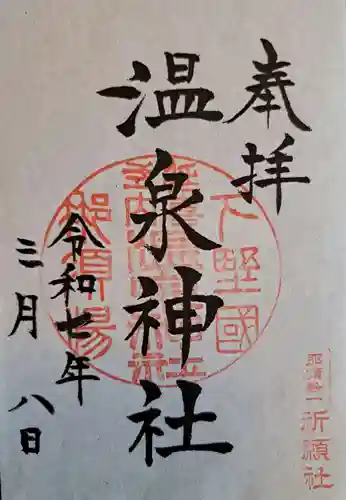 奉拝
温泉神社
令和七年
三月八日
下野國
那須湯
那須与一
祈願社